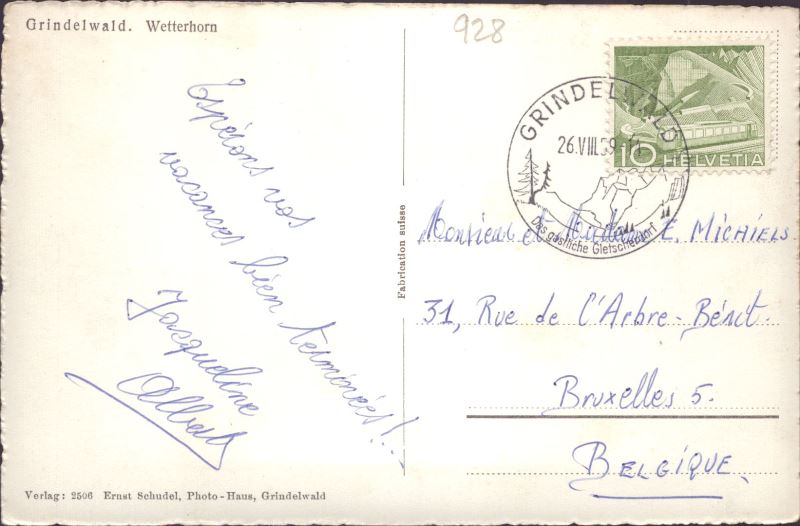 Grindelwald. Wetterhorn
928
10 HELVETIA
GRINDELWALD
26.VIII.59.-11
Das gastliche Gletscherdorf
Espérons vos
vacances bien terminées!..
Jacqueline
Albert
Fabrication suisse
Monsieur et Madame E. MICHIELS
31, Rue de l'Arbre-Bénit.
Bruxelles 5.
BELGIQUE.
Verlag: 2506 Ernst Schudel, Photo-Haus, Grindelwald